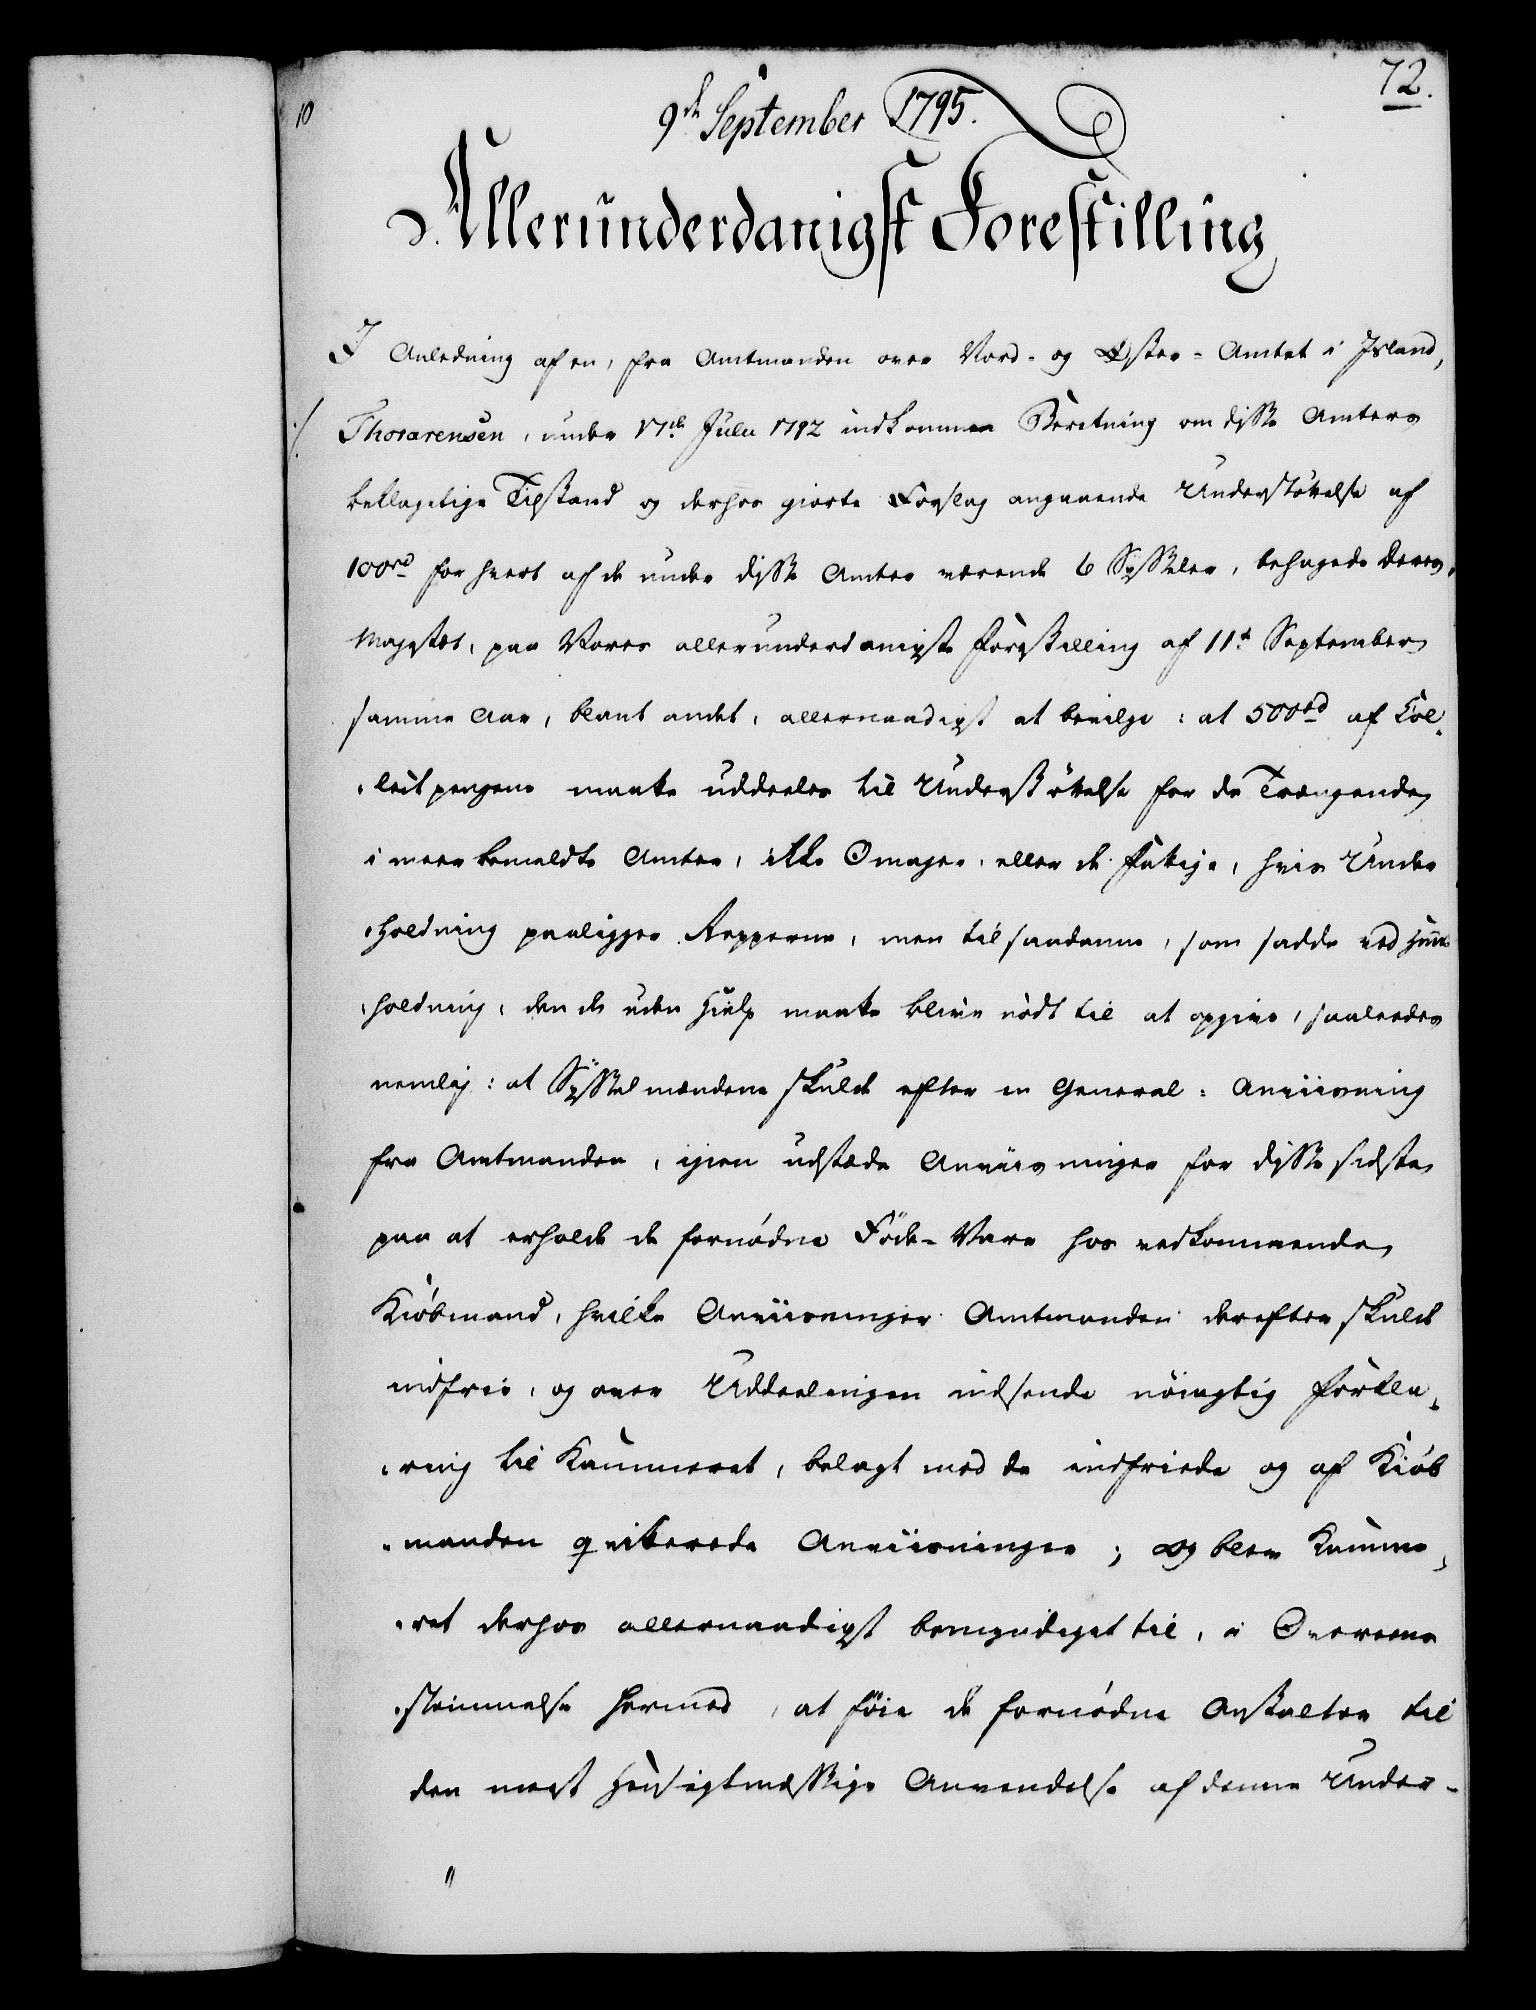 72.
10
9de September 1795.
Allerunderdanigst Forestilling
I Anledning af en, fra Amtmanden over Nord- og Øster-Amtet i Island,
Thorarensen, under 17de Julii 1792 indkommen Beretning om disse Amters
beklagelige Tilstand og derhos giorte Forslag angaaende Understøttelse af
100rd for hvert af de under disse Amter værende 6 Sysseler, behagede Deres
Majestæt, paa Vores allerunderdanigste Forestilling af 11te September
samme Aar, blant andet, allernaadigst at bevilge: at 500rd af Col-
lectpengene maatte uddeeles til Understøttelse for de Trængende
i meerbemeldte Amter, ikke Omager, eller de Fattige, hvis Under
holdning paaligger Repperne, men til saadanne, som sadde ved Huus
holdning, den de uden Hielp maatte blive nødt til at opgive, saaledes
nemlig: at Sysselmændene skulde efter en General-Anviisning
fra Amtmanden, igien udstæde Anviisninger for disse sidste
paa at erholde de fornødne Føde-Vare hos vedkommende
Kiøbmand, hvilke Anviisninger Amtmanden derefter skulde
indfrie, og over Uddeelingen indsende nøiagtig Forkla-
ring til Kammeret, belagt med de indfriede og af Kiøb
manden qvitterede Anviisninger; og blev Kamme-
ret derhos allernaadigst bemyndiget til, i Overeens
stemmelse hermed, at føie de fornødne Anstalter til
den meest Hensigtmæssige Anvendelse af denne Under-